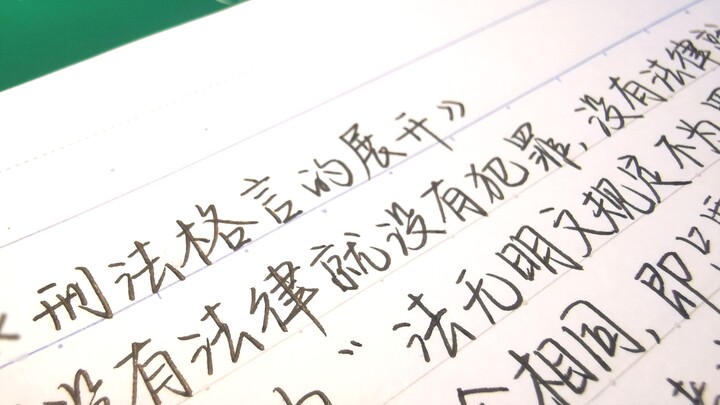 《刑法格言的展开》
没有法律就没有犯罪，没有法律就
“法无明文规定不为罪
相同，即